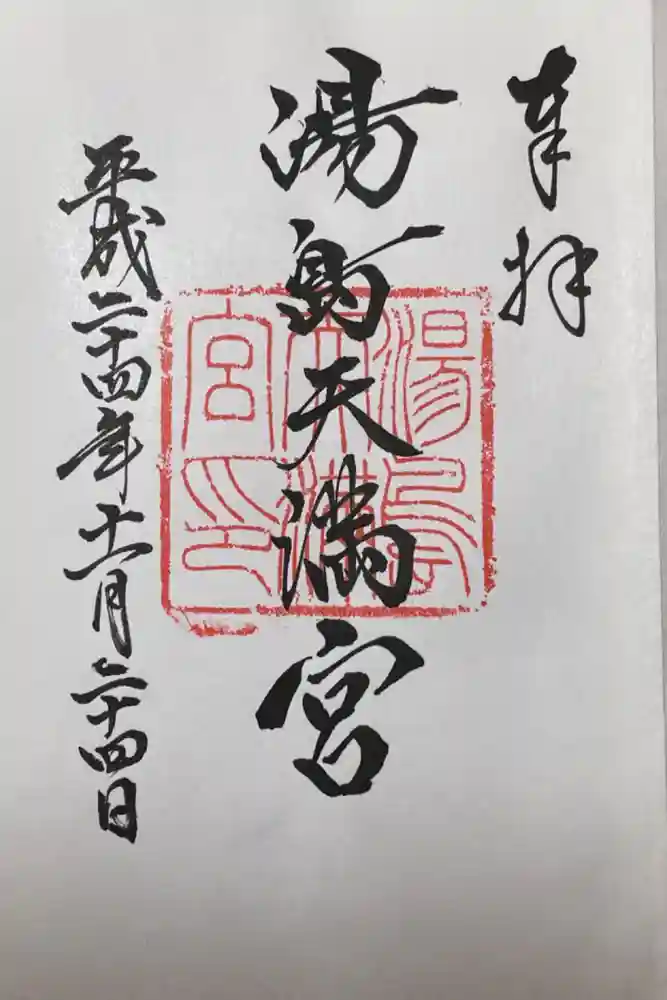 奉拝
湯島天満宮
湯島
天満
宮印
平成二十四年十一月二十四日